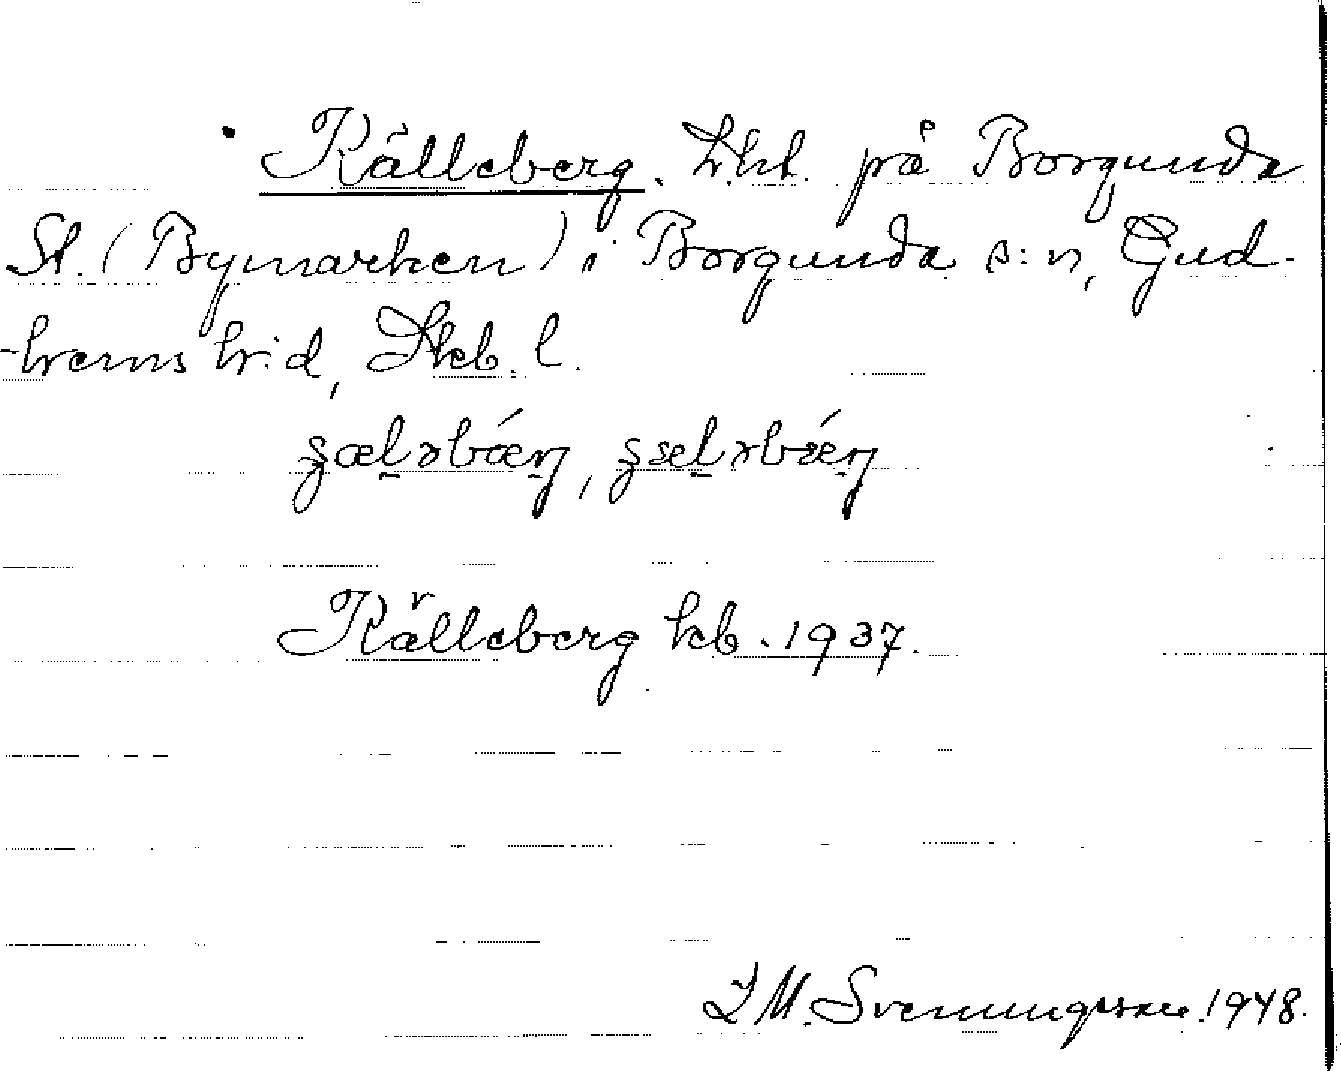 Källeberg. Lht. på Borgunda
St. (Bymarken) i Borgunda s:n, Gud-
-hems h:d, Skb. l.
Källeberg kb. 1937.
I M. Svenungsson. 1948.